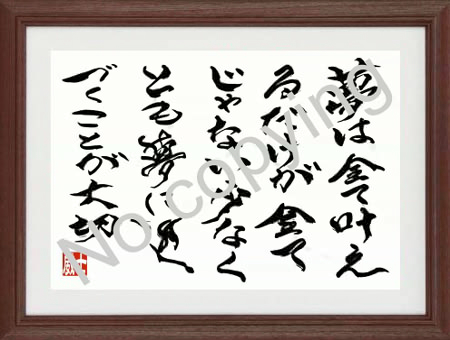 夢は全て叶え
るだけが全て
じゃない少なく
とも夢に近
づくことが大切
No copying